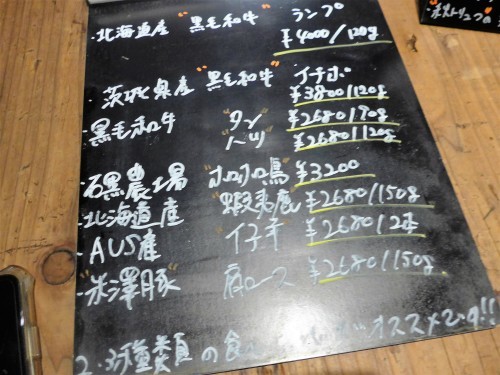 ・北海道産 "黒毛和牛" ランプ
¥4000/120g
・茨城県産 "黒毛和牛" イチボ
¥3800/120g
・黒毛和牛 "タン ¥2680/90g
"ハツ ¥2680/120g
・石黒農場 "ホロホロ鳥" ¥3200
・北海道産 "蝦夷鹿" ¥2680/150g
・AUS産 "仔羊 ¥2680/2本
・"米澤豚" 肩ロース ¥2680/150g
2・3種類の食べ オススメです!!